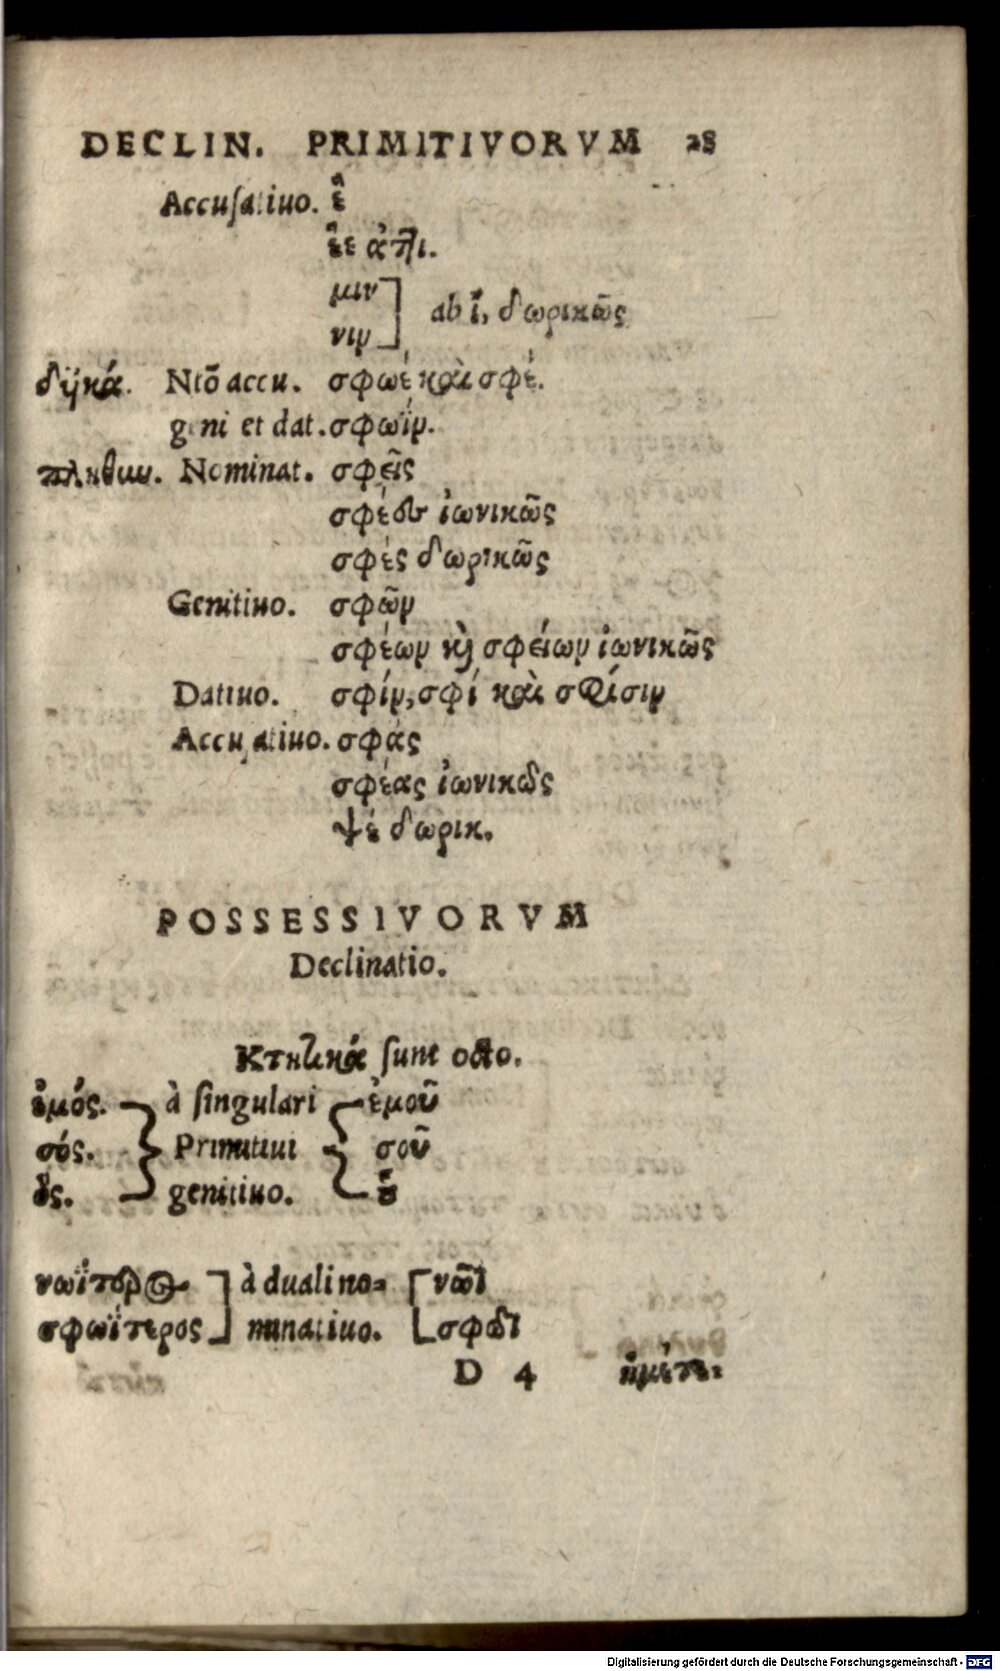 DECLIN. PRIMITIVORVM 28
Accusatiuo. ἓ
ἓε ἀττι.
μιν
νιν
ab ἵ, δωρικῶς
δυϊκά. Ntõ accu. σφωέ καὶ σφέ.
geni et dat. σφωΐν.
πληθυν. Nominat. σφεῖς
σφέες ἰωνικῶς
σφές δωρικῶς
Genitiuo. σφῶν
σφέων καὶ σφείων ἰωνικῶς
Datiuo. σφίν, σφί καὶ σφίσιν
Accusatiuo. σφάς
σφέας ἰωνικῶς
ψέ δωρικ.
POSSESSIVORVM
Declinatio.
Κτητικά sunt octo.
ἐμός. à singulari ἐμοῦ
σός. Primitiui σοῦ
ὅς. genitiuo. οὗ
νωΐτερος à dualino= νῶϊ
σφωΐτερος minatiuo. σφῶϊ
D 4 ἡμέτε=
Digitalisierung gefördert durch die Deutsche Forschungsgemeinschaft - DFG